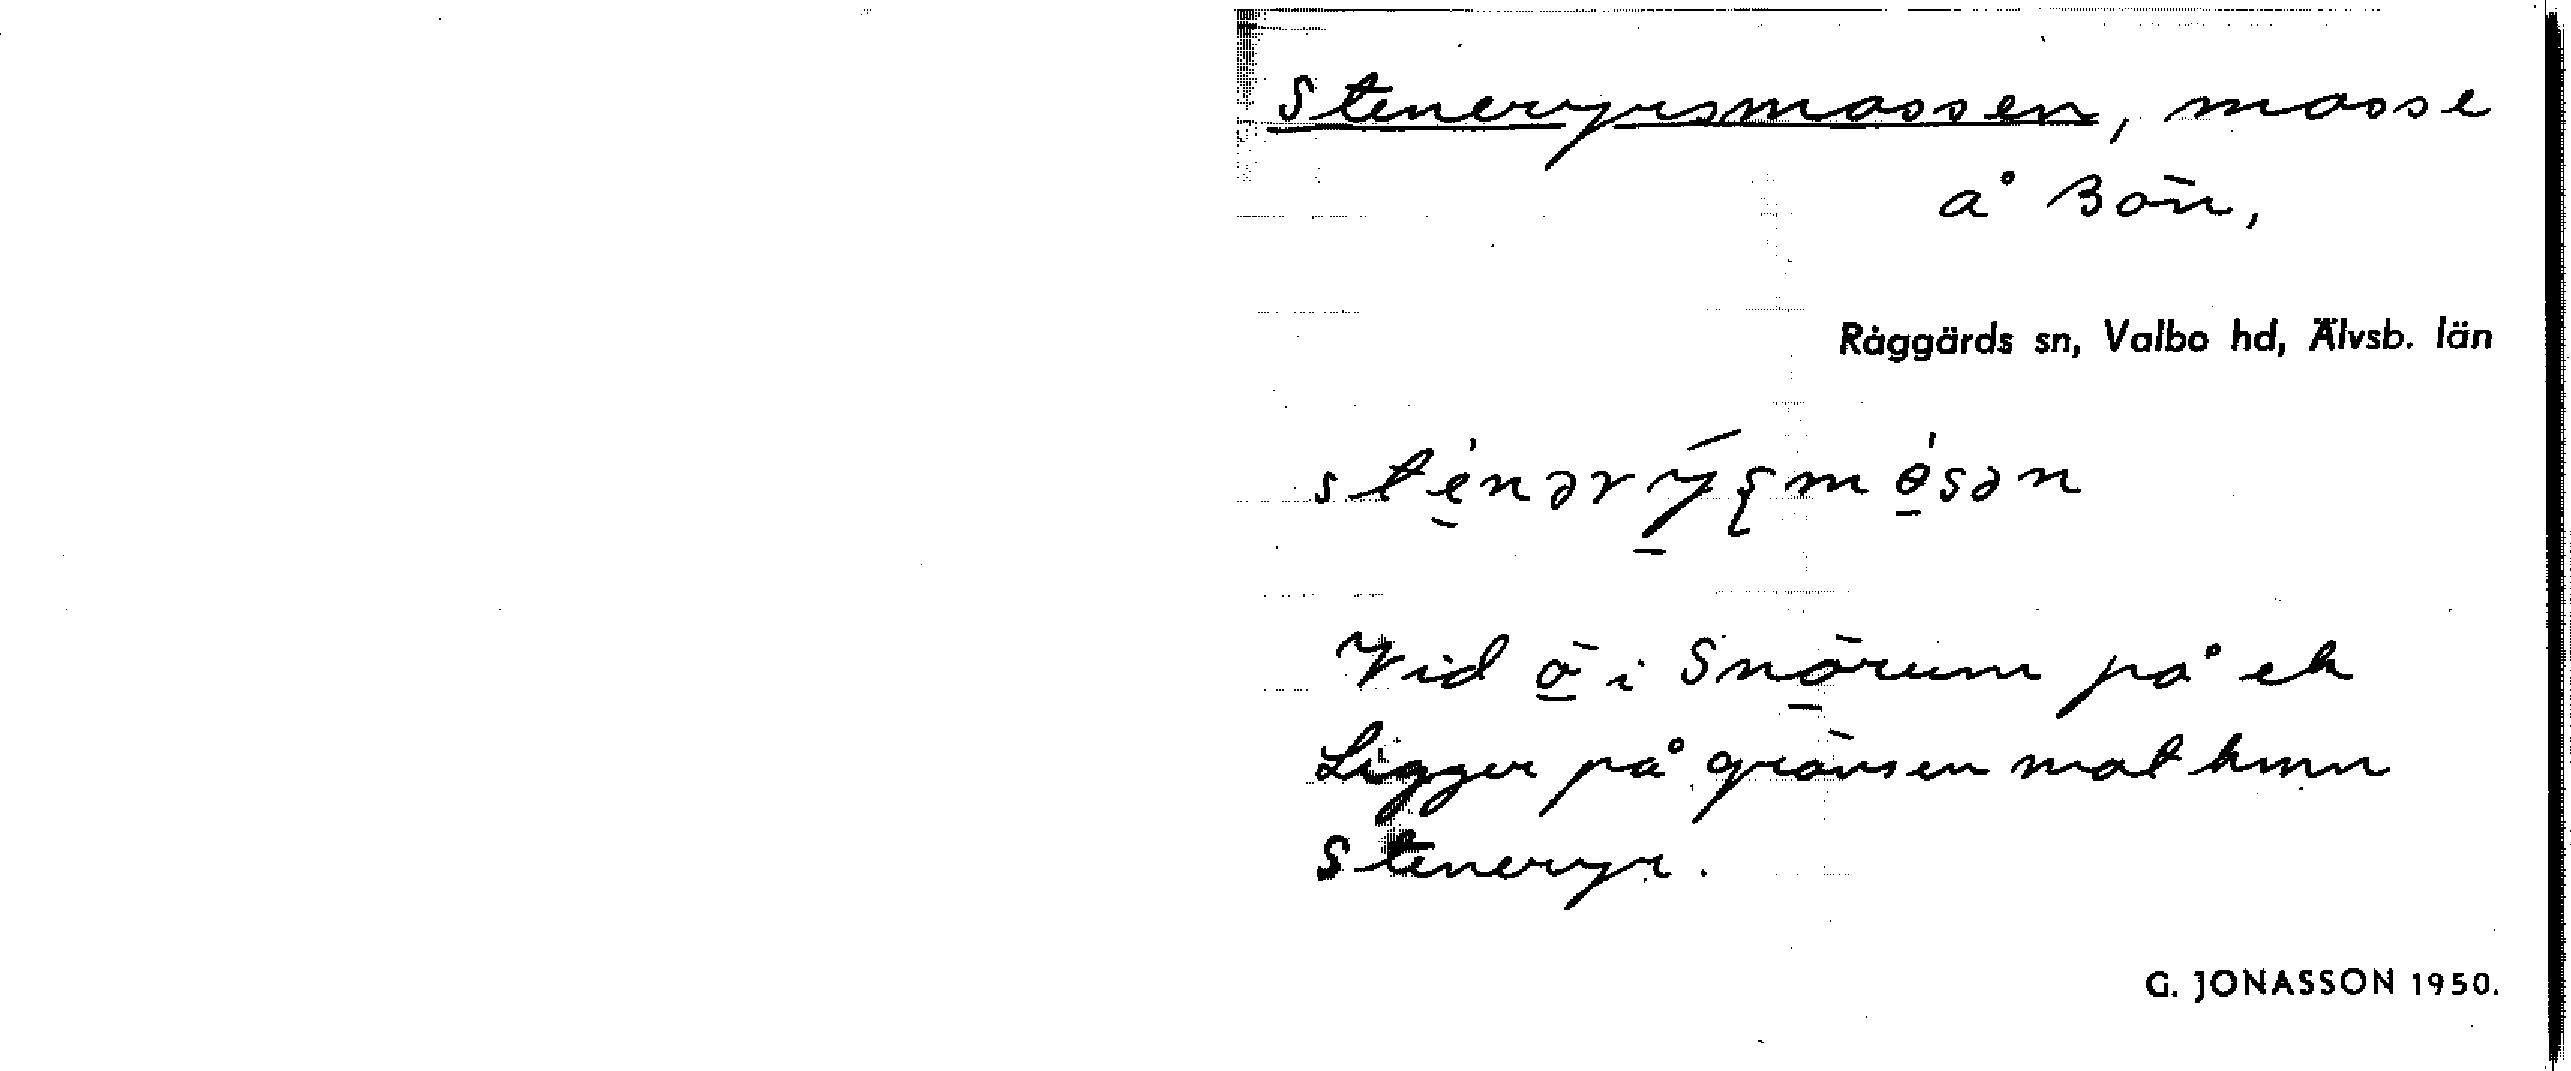 Steneryrsmossen, mosse
å Bön,
Råggärds sn, Valbo hd, Älvsb. län
sténərýʂmósən
Vid ö i Snörum på ek
Ligger på gränsen mot hmn
Steneryr.
G. JONASSON 1950.